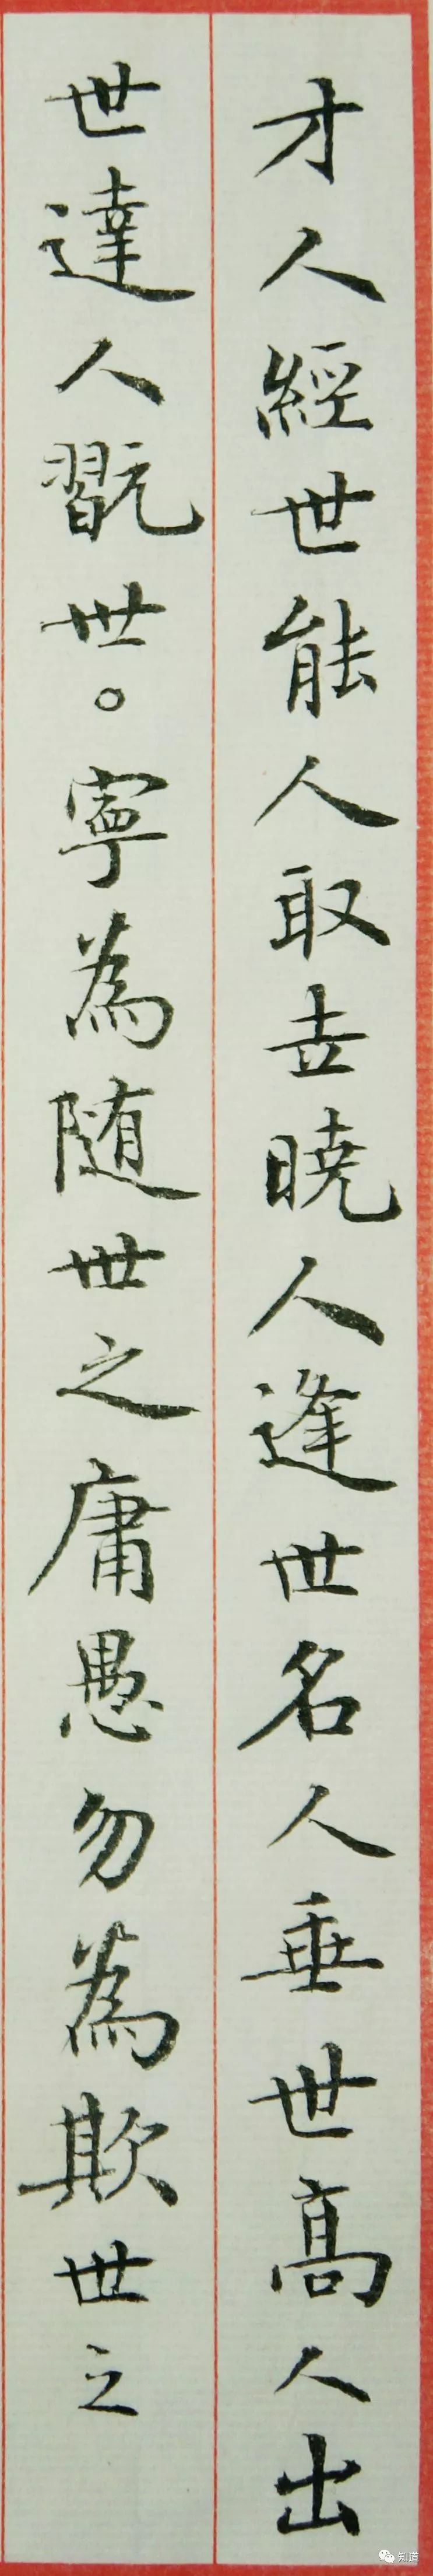 才人經世能人取世曉人逢世名人垂世髙人出
世達人翫世。寧為随世之庸愚勿為欺世之
知道